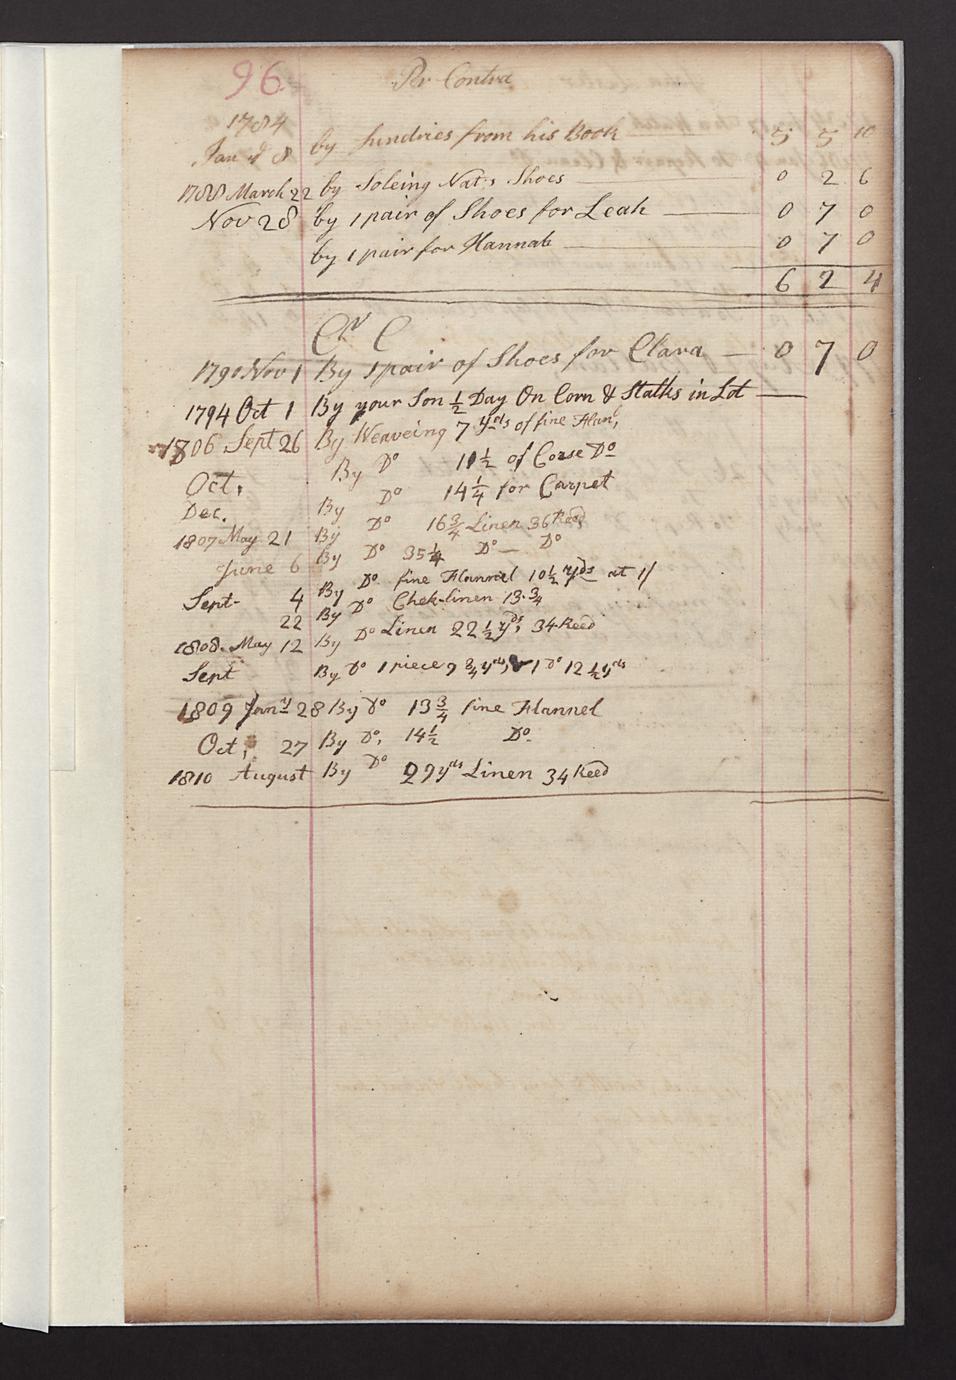 96 Pr Contra
1784
Jan d 8 by Sundries from his Book 5 5 10
1788 March 22 by Soleing Nat's Shoes 0 2 6
Nov 28 by 1 pair of Shoes for Leah 0 7 0
by 1 pair for Hannah 0 7 0
6 2 4
Cr C
1790 Nov 1 By 1 pair of Shoes for Clara 0 7 0
1794 Oct 1 By your Son ½ Day On Corn & Stalks in Lot
1806 Sept 26 By Weaveing 7 yds of fine Flan,
By Do 11½ of Corse Do
Oct, By Do 14¼ for Carpet
Dec. By Do 16¾ Linen 36 Reed
1807 May 21 By Do 35¼ Do Do
June 6 By Do fine Flannel 10½ yds at 1/
Sept 4 By Do Chek-linen 13.¾
22 By Do Linen 22½ yds, 34 Reed
1808. May 12
Sept By Do 1 piece 9¾ yds, 1 Do 12½ yds
1809 Jany 28 By Do 13¾ fine Flannel
Oct, 27 By Do, 14½ Do.
1810 August By Do 29 yds Linen 34 Reed